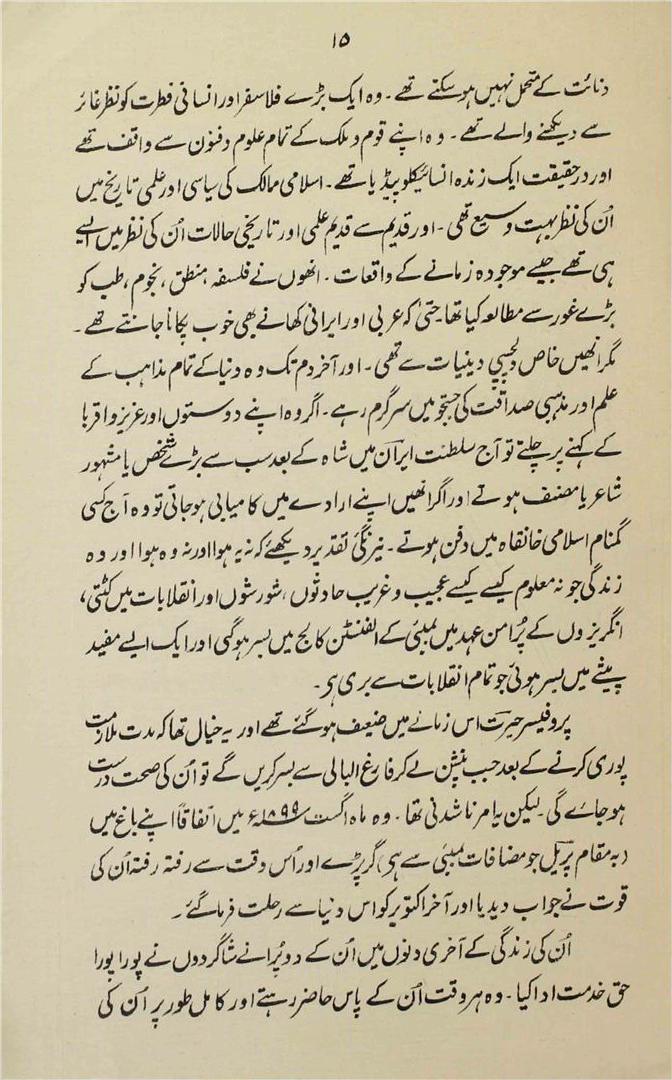 ۱۵
دنائت کے متحمل نہیں ہو سکتے تھے۔ وہ ایک بڑے فلاسفر اور انسانی فطرت کو نظر غائر
سے دیکھنے والے تھے۔ وہ اپنے قوم و ملک کے تمام علوم و فنون سے واقف تھے
اور درحقیقت ایک زندہ انسائیکلوپیڈیا تھے۔ اسلامی ممالک کی سیاسی اور علمی تاریخ میں
اُن کی نظر بہت وسیع تھی۔ اور قدیم سے قدیم علمی اور تاریخی حالات اُن کی نظر میں ایسے
ہی تھے جیسے موجودہ زمانے کے واقعات۔ انھوں نے فلسفہ، منطق، نجوم، طب کو
بڑے غور سے مطالعہ کیا تھا۔ حتیٰ کہ عربی اور ایرانی کھانے بھی خوب پکانا جانتے تھے۔
مگر انھیں خاص دلچسپی دینیات سے تھی۔ اور آخر دم تک وہ دنیا کے تمام مذاہب کے
علم اور مذہبی صداقت کی جستجو میں سرگرم رہے۔ اگر وہ اپنے دوستوں اور عزیز و اقربا
کے کہنے پر چلتے تو آج سلطنت ایران میں شاہ کے بعد سب سے بڑے شخص یا مشہور
شاعر یا مصنف ہوتے اور اگر انھیں اپنے ارادے میں کامیابی ہو جاتی تو وہ آج کسی
گمنام اسلامی خانقاہ میں دفن ہوتے۔ نیرنگیٔ تقدیر دیکھئے کہ نہ یہ ہوا اور نہ وہ ہوا اور وہ
زندگی جو نہ معلوم کیسے کیسے عجیب و غریب حادثوں، شورشوں اور انقلابات میں کٹتی،
انگریزوں کے پُرامن عہد میں بمبئی کے الفنسٹن کالج میں بسر ہوگئی اور ایک ایسے مفید
پیشے میں بسر ہوئی جو تمام انقلابات سے بری ہی۔
پروفیسر حیرت اس زمانے میں ضعیف ہو گئے تھے اور یہ خیال تھا کہ مدت ملازمت
پوری کرنے کے بعد جب پنشن لے کر فارغ البالی سے بسر کریں گے تو اُن کی صحت درست
ہو جائے گی۔ لیکن یہ امر ناشدنی تھا۔ وہ ماہ اگست ۱۸۹۹ء میں اتفاقاً اپنے باغ میں
(بہ مقام پریل جو مضافات بمبئی سے ہی) گر پڑے اور اُس وقت سے رفتہ رفتہ اُن کی
قوت نے جواب دیدیا اور آخر اکتوبر کو اس دنیا سے رحلت فرما گئے۔
اُن کی زندگی کے آخری دنوں میں اُن کے دو پُرانے شاگردوں نے پورا پورا
حق خدمت ادا کیا۔ وہ ہر وقت اُن کے پاس حاضر رہتے اور کامل طور پر اُن کی